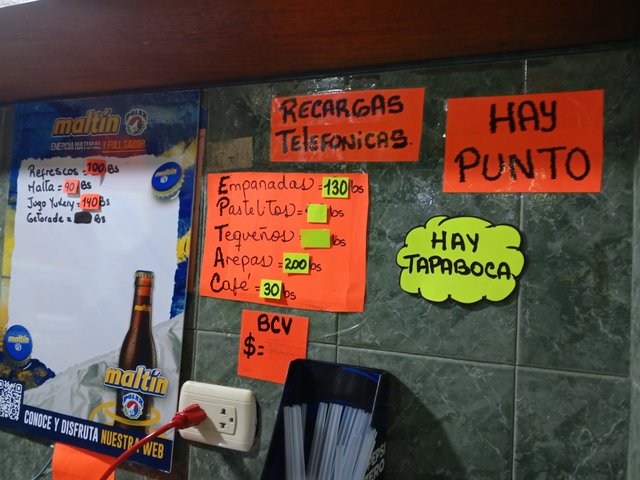 maltín
POLAR
ENERGÍA NATURAL Y FULL SABOR
Refrescos = 300 Bs
Malta = 90 Bs
Jugo Yukery = 140 Bs
Getorade = Bs
maltín
maltín
POLAR
CONOCE Y DISFRUTA NUESTRA WEB
RECARGAS
TELEFONICAS.
HAY
PUNTO
Empanadas = 130 bs
Pastelitos = bs
Tequeños bs
Arepas = 200 bs
Café = 30 bs
HAY
TAPABOCA
BCV
$=